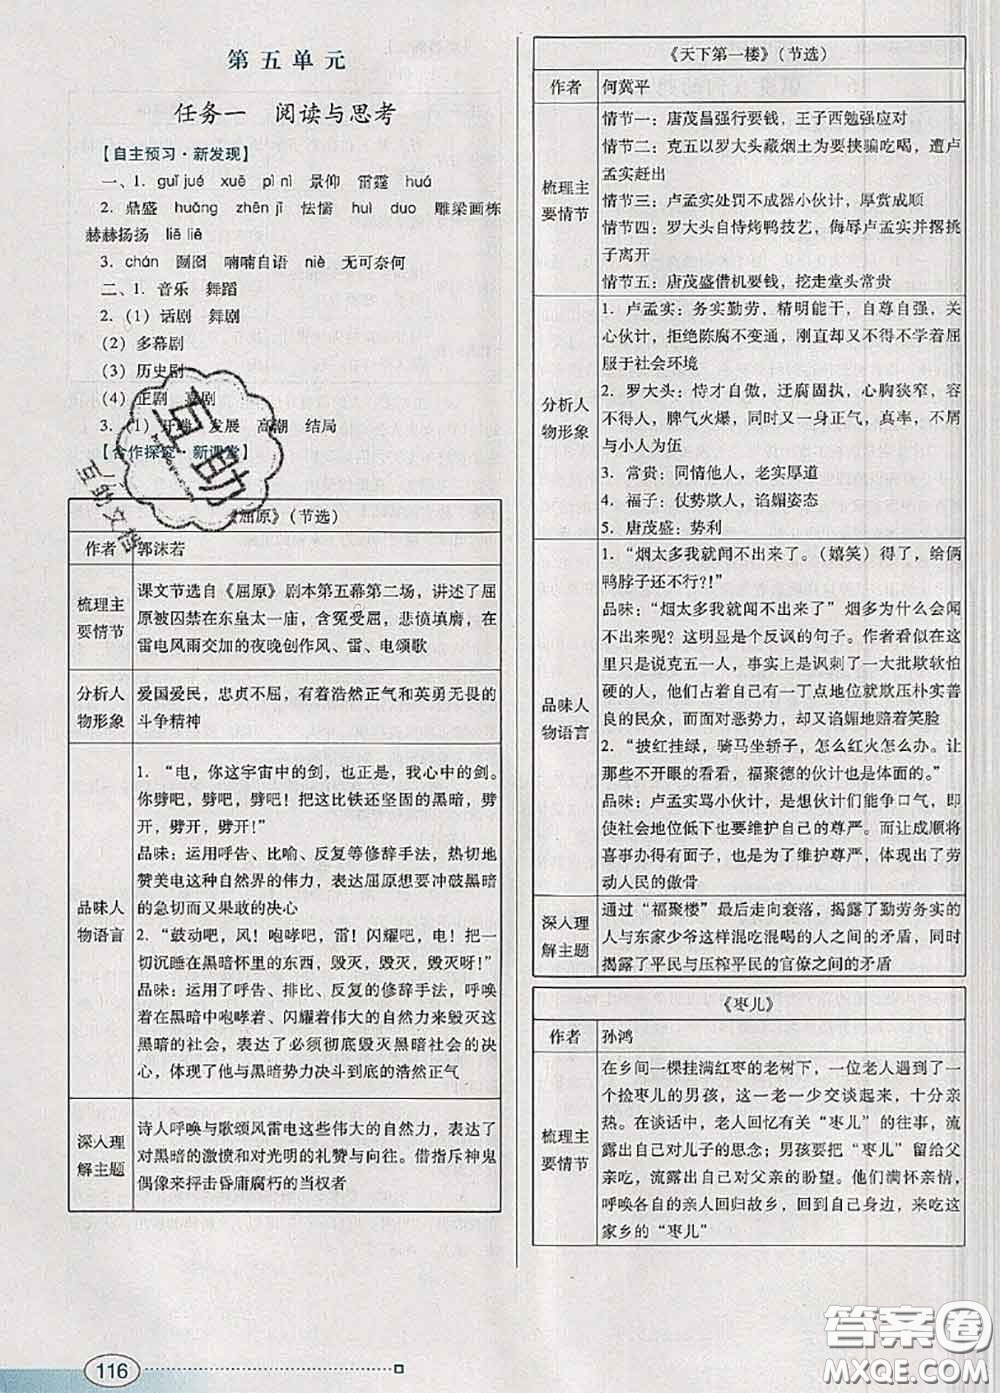 第五单元
任务一　阅读与思考
【自主预习·新发现】
一、1. guī jué　xuē　pì nì　景仰　雷霆　huá
2. 鼎盛　huǎng　zhēn jǐ　怯懦　huì　duo　雕梁画栋
赫赫扬扬　liē liē
3. chán　囫囵　喃喃自语　niè　无可奈何
二、1. 音乐　舞蹈
2. (1) 话剧　舞剧
(2) 多幕剧
(3) 历史剧
(4) 正剧　喜剧
3. (1) 开端　发展　高潮　结局
【合作探究·新课堂】
《屈原》（节选）
作者　郭沫若
梳理主要情节
课文节选自《屈原》剧本第五幕第二场，讲述了屈
原被囚禁在东皇太一庙，含冤受屈，悲愤填膺，在
雷电风雨交加的夜晚创作风、雷、电颂歌
分析人物形象
爱国爱民，忠贞不屈，有着浩然正气和英勇无畏的
斗争精神
品味人物语言
1. “电，你这宇宙中的剑，也正是，我心中的剑。
你劈吧，劈吧，劈吧！把这比铁还坚固的黑暗，劈
开，劈开，劈开！”
品味：运用呼告、比喻、反复等修辞手法，热切地
赞美电这种自然界的伟力，表达屈原要冲破黑暗
的急切而又果敢的决心
2. “鼓动吧，风！咆哮吧，雷！闪耀吧，电！把一
切沉睡在黑暗怀里的东西，毁灭，毁灭，毁灭呀！”
品味：运用了呼告、排比、反复的修辞手法，呼唤
着在黑暗中咆哮着、闪耀着伟大的自然力来毁灭
黑暗的社会，表达了必须彻底毁灭黑暗社会的决
心，体现了他与黑暗势力决斗到底的浩然正气
深入理解主题
诗人呼唤与歌颂风雷电这些伟大的自然力，表达了
对黑暗的激愤和对光明的礼赞与向往。借指斥神鬼
偶像来抨击昏庸腐朽的当权者
《天下第一楼》（节选）
作者　何冀平
梳理主要情节
情节一：唐茂昌强行要钱，王子西勉强应对
情节二：克五以罗大头藏烟土为要挟骗吃喝，遭卢
孟实赶出
情节三：卢孟实处罚不成器小伙计，厚赏成顺
情节四：罗大头自恃烤鸭技艺，侮辱卢孟实并撂挑
子离开
情节五：唐茂盛借机要钱，挖走堂头常贵
分析人物形象
1. 卢孟实：务实勤劳，精明能干，自尊自强，关
心伙计，拒绝陈腐不变通，刚直却又不得不学着屈
服于社会环境
2. 罗大头：恃才自傲，迂腐固执，心胸狭窄，容
不得人，脾气火爆，同时又一身正气，真率，不屑
与小人为伍
3. 常贵：同情他人，老实厚道
4. 福子：仗势欺人，谄媚姿态
5. 唐茂盛：势利
品味人物语言
1. “烟太多我就闻不出来了。（嬉笑）得了，给俩
鸭脖子还不行?！”
品味：“烟太多我就闻不出来了”烟多为什么会闻
不出来呢？这明显是个反讽的句子。作者看似在这
里只是说克五一人，事实上是讽刺了一大批欺软怕
硬的人，他们占着自己有一丁点地位就欺压朴实善
良的民众，而面对恶势力，却又谄媚地赔着笑脸
2. “披红挂绿，骑马坐轿子，怎么红火怎么办。让
那些不开眼的看看，福聚德的伙计也是体面的。”
品味：卢孟实骂小伙计，是想伙计们能争口气，即
使社会地位低下也要维护自己的尊严。而让成顺将
喜事办得有面子，也是为了维护尊严，体现出了劳
动人民的傲骨
深入理解主题
通过“福聚楼”最后走向衰落，揭露了勤劳务实的
人与东家少爷这样混吃混喝的人之间的矛盾，同时
揭露了平民与压榨平民的官僚之间的矛盾
《枣儿》
作者　孙鸿
梳理主要情节
在乡间一棵挂满红枣的老树下，一位老人遇到了一
个捡枣儿的男孩，这一老一少交谈起来，十分亲
热。在谈话中，老人回忆有关“枣儿”的往事，流
露出自己对儿子的思念；男孩要把“枣儿”留给父
亲吃，流露出自己对父亲的盼望。他们满怀亲情，
呼唤各自的亲人回归故乡，回到自己身边，来吃这
家乡的“枣儿”
116
互助
互助文档
答案圈
MXQE.COM